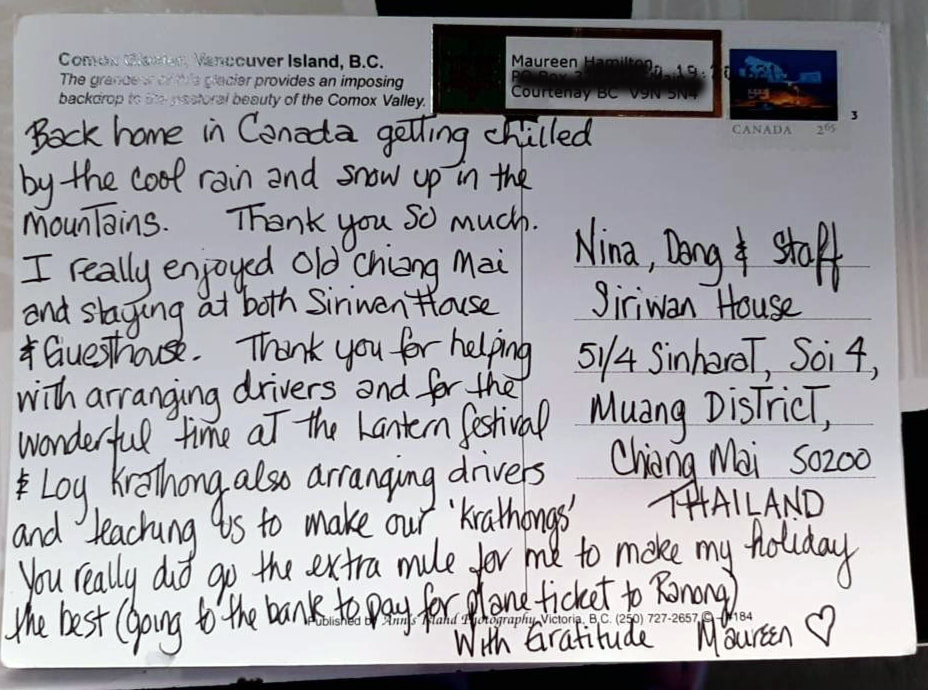 Comox Glacier, Vancouver Island, B.C.
The grandeur of this glacier provides an imposing
backdrop to the pastoral beauty of the Comox Valley.
Maureen Hamilton
PO Box
Courtenay BC V9N 5N4
CANADA 2.65
3
Back home in Canada getting chilled
by the cool rain and snow up in the
mountains. Thank you so much.
I really enjoyed Old Chiang Mai
and staying at both Siriwan House
& Guesthouse. Thank you for helping
with arranging drivers and for the
wonderful time at the Lantern festival
& Loy Krathong also arranging drivers
and teaching us to make our 'krathongs'
You really did go the extra mile for me to make my holiday
the best (going to the bank to pay for plane ticket to Ranong)
With Gratitude Maureen ♡
Nina, Dang & Staff
Siriwan House
51/4 Sinharat, Soi 4,
Muang District,
Chiang Mai 50200
THAILAND
Published by Ann's Island Photography, Victoria, B.C. (250) 727-2657 © #184